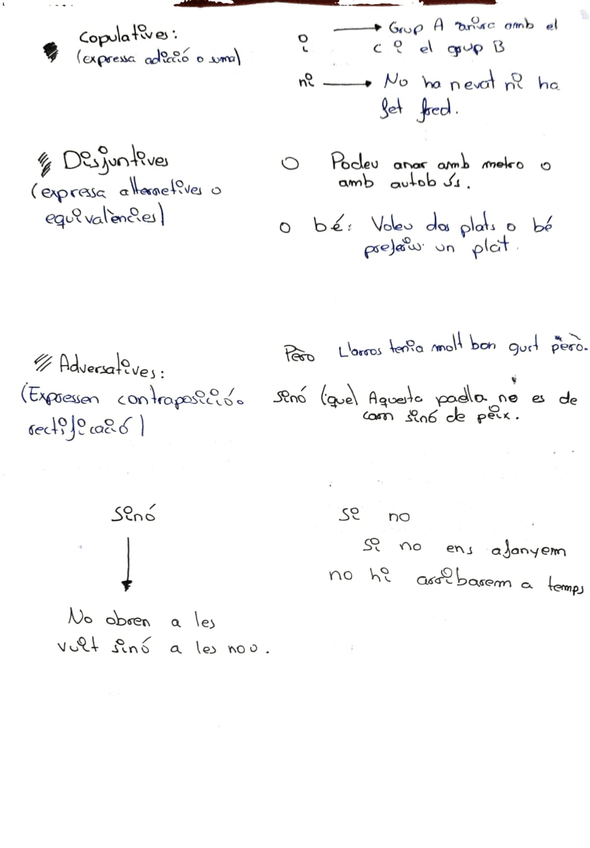 Copulatives:
(expressa adició o suma)
i → Grup A anirà amb el
C i el grup B
ni → No ha nevat ni ha
fet fred.
Disjuntives
(expressa alternetives o
equivalències)
O Podeu anar amb metro o
amb autobús.
o bé: Voleu dos plats o bé
preferiu un plat.
Adversatives:
(Expressen contraposició.
rectificació)
Però L'arros tenia molt bon gust però.
sinó (que) Aquesta paella no es de
carn sinó de peix.
sinó
No obren a les
vuit sinó a les nou.
si no
si no ens afanyem
no hi arribarem a temps